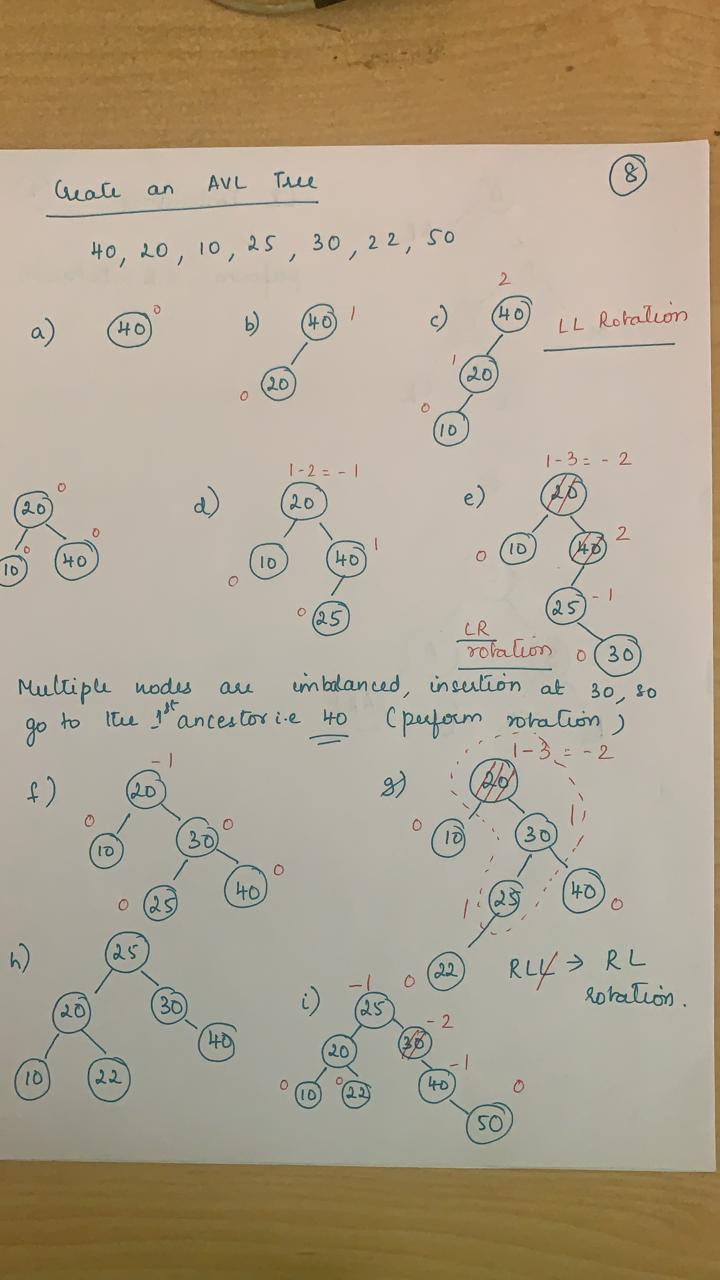 8
Create an AVL Tree
40, 20, 10, 25, 30, 22, 50
a) 40 0
b) 40 1
20 0
c) 2
40
LL Rotation
1 20
0 10
20 0
10 0 40 0
d) 1-2 = -1
20
0 10 40 1
0 25
e) 1-3 = -2
20
0 10 40 2
25 -1
0 30
LR
rotation
Multiple nodes are imbalanced, insertion at 30, so
go to the 1st ancestor i.e 40 (perform rotation)
f) -1
20
0 10 30 0
0 25 40 0
g) 1-3 = -2
20
0 10 30 1
1 25 40 0
0 22
RLL → RL
rotation.
h) 25
20 30
10 22 40
i) -1 25
20 30 -2
0 10 0 22 40 -1
50 0